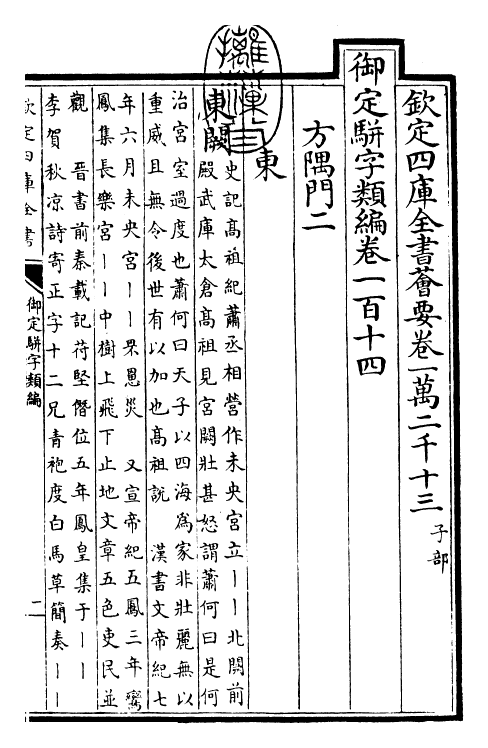 欽定四庫全書薈要卷一萬二千十三 子部
御定駢字類編卷一百十四
方隅門二
東
東闕 史記髙祖紀蕭丞相營作未央宫立丨丨北闕前
殿武庫太倉髙祖見宫闕壯甚怒謂蕭何曰是何
治宫室過度也蕭何曰天子以四海為家非壯麗無以
重威且無令後世有以加也髙祖説 漢書文帝紀七
年六月未央宫丨丨罘罳災 又宣帝紀五鳳三年鸞
鳳集長樂宫丨丨中樹上飛下止地文章五色吏民並
觀 晉書前秦載記苻堅僭位五年鳳皇集于丨丨
李賀秋凉詩寄正字十二兄青袍度白馬草簡奏丨丨
欽定四庫全書
御定駢字類編